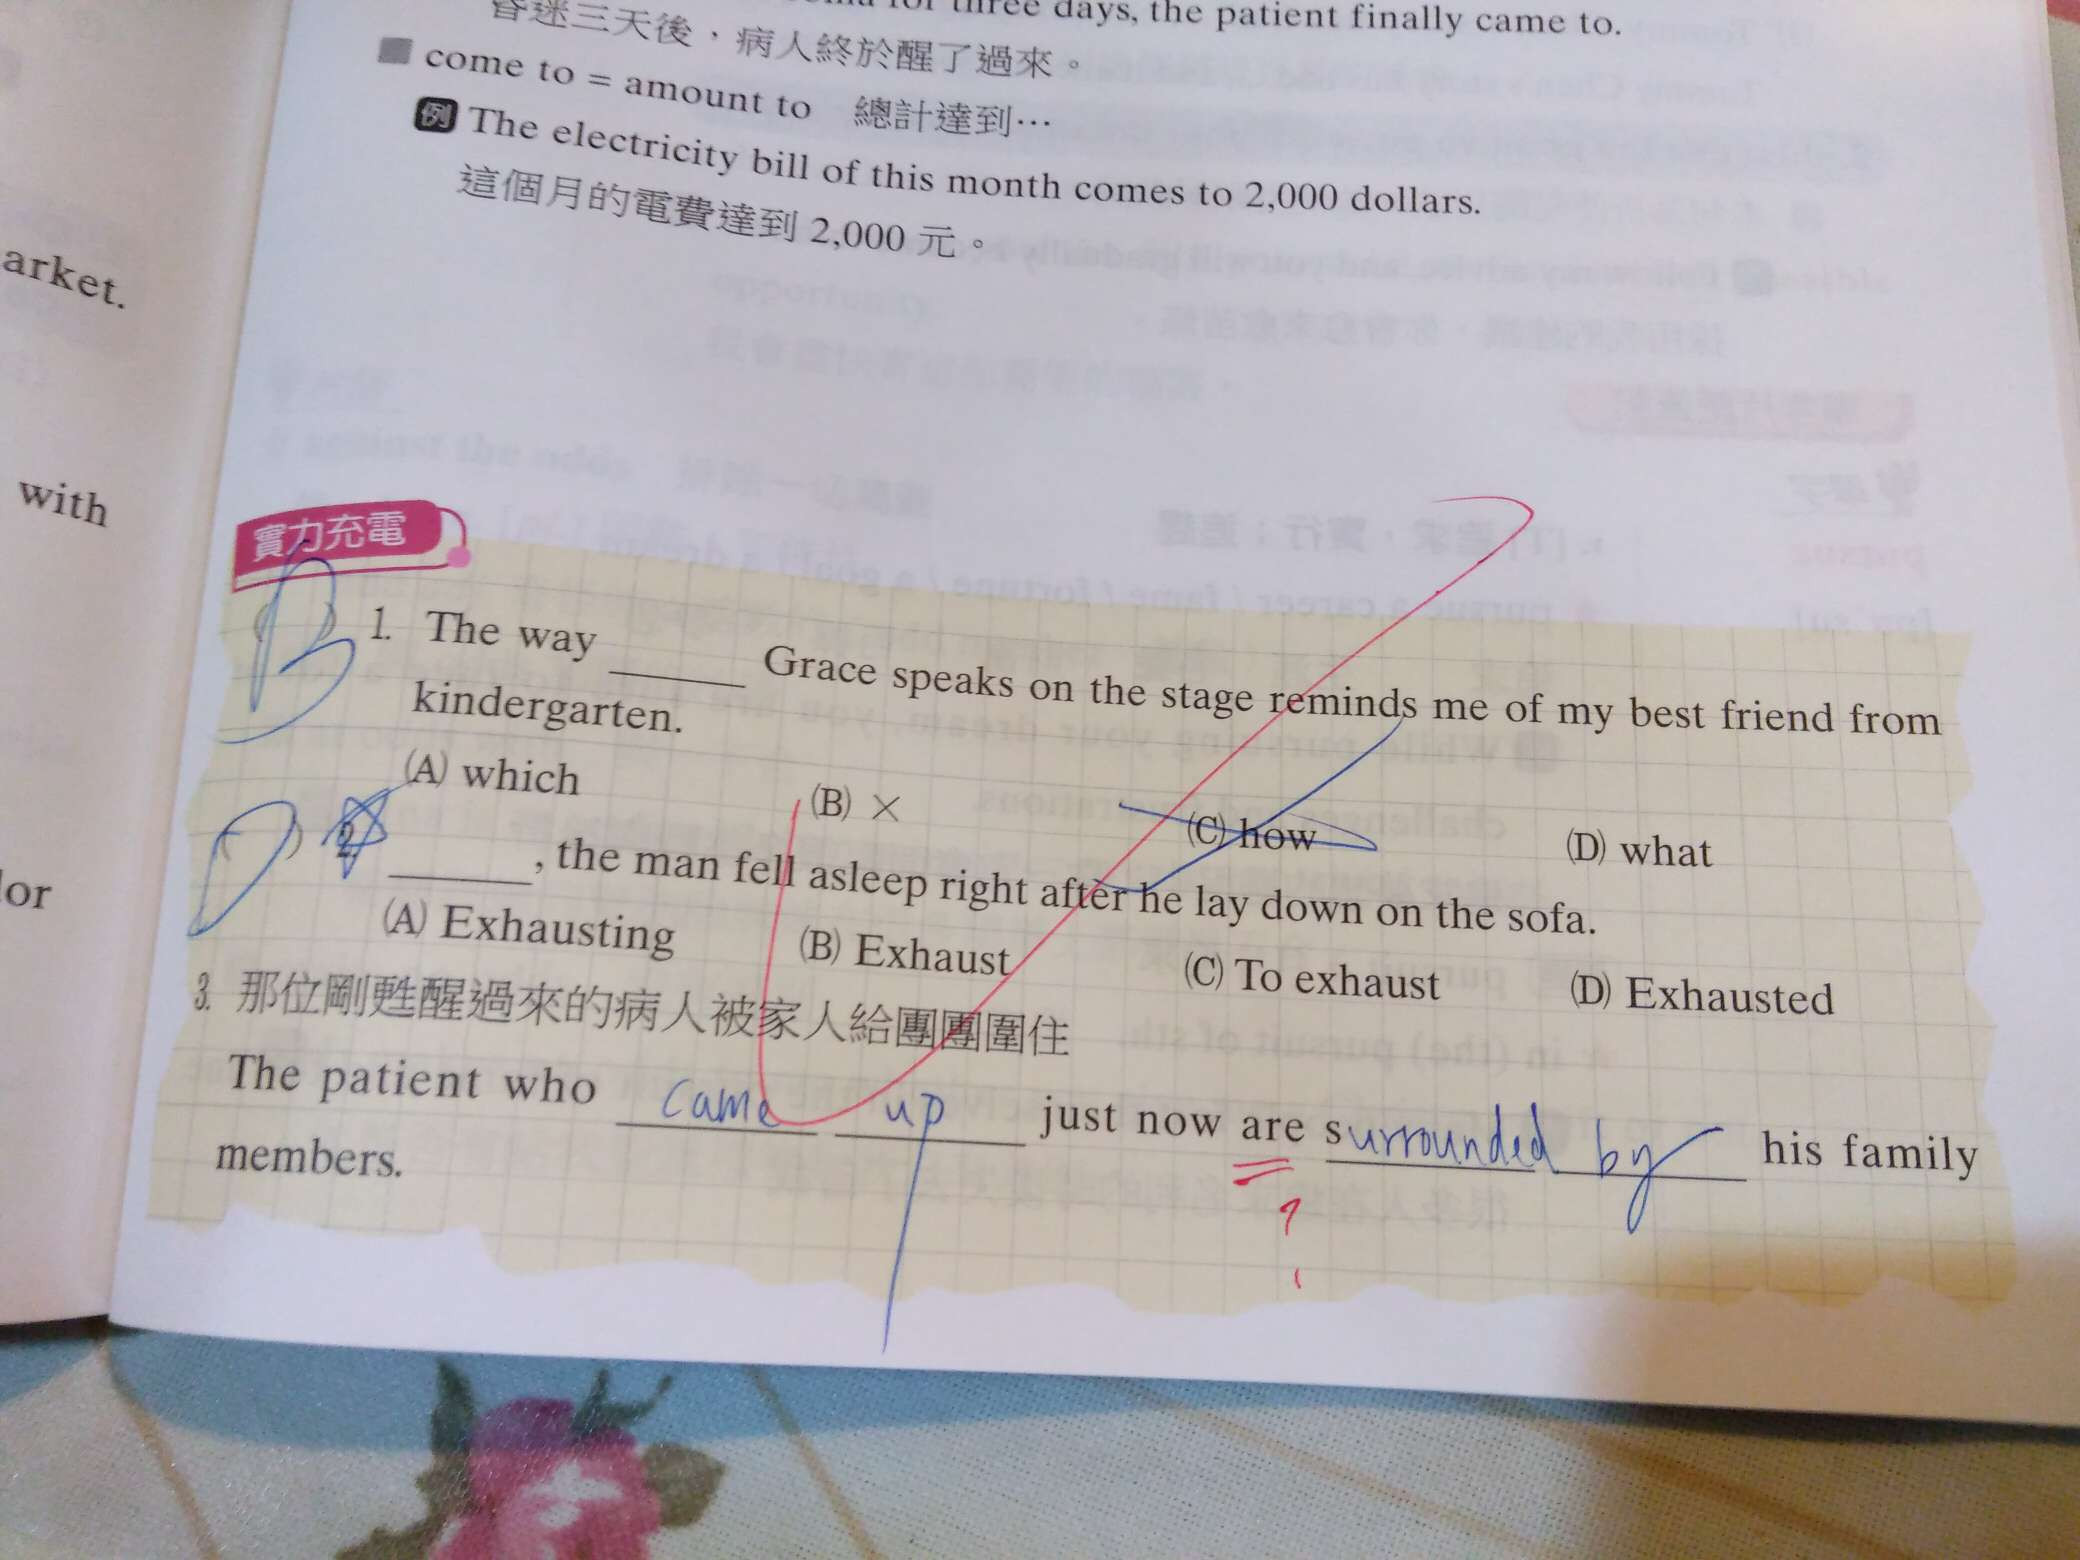 for three days, the patient finally came to.
昏迷三天後，病人終於醒了過來。
come to = amount to 總計達到…
例 The electricity bill of this month comes to 2,000 dollars.
這個月的電費達到 2,000 元。
arket.
with
實力充電
(B) 1. The way ______ Grace speaks on the stage reminds me of my best friend from
kindergarten.
(A) which (B) × (C) how (D) what
(D) 2. ______, the man fell asleep right after he lay down on the sofa.
lor
(A) Exhausting (B) Exhaust (C) To exhaust (D) Exhausted
3. 那位剛甦醒過來的病人被家人給團團圍住
The patient who came up just now are surrounded by his family
?
members.